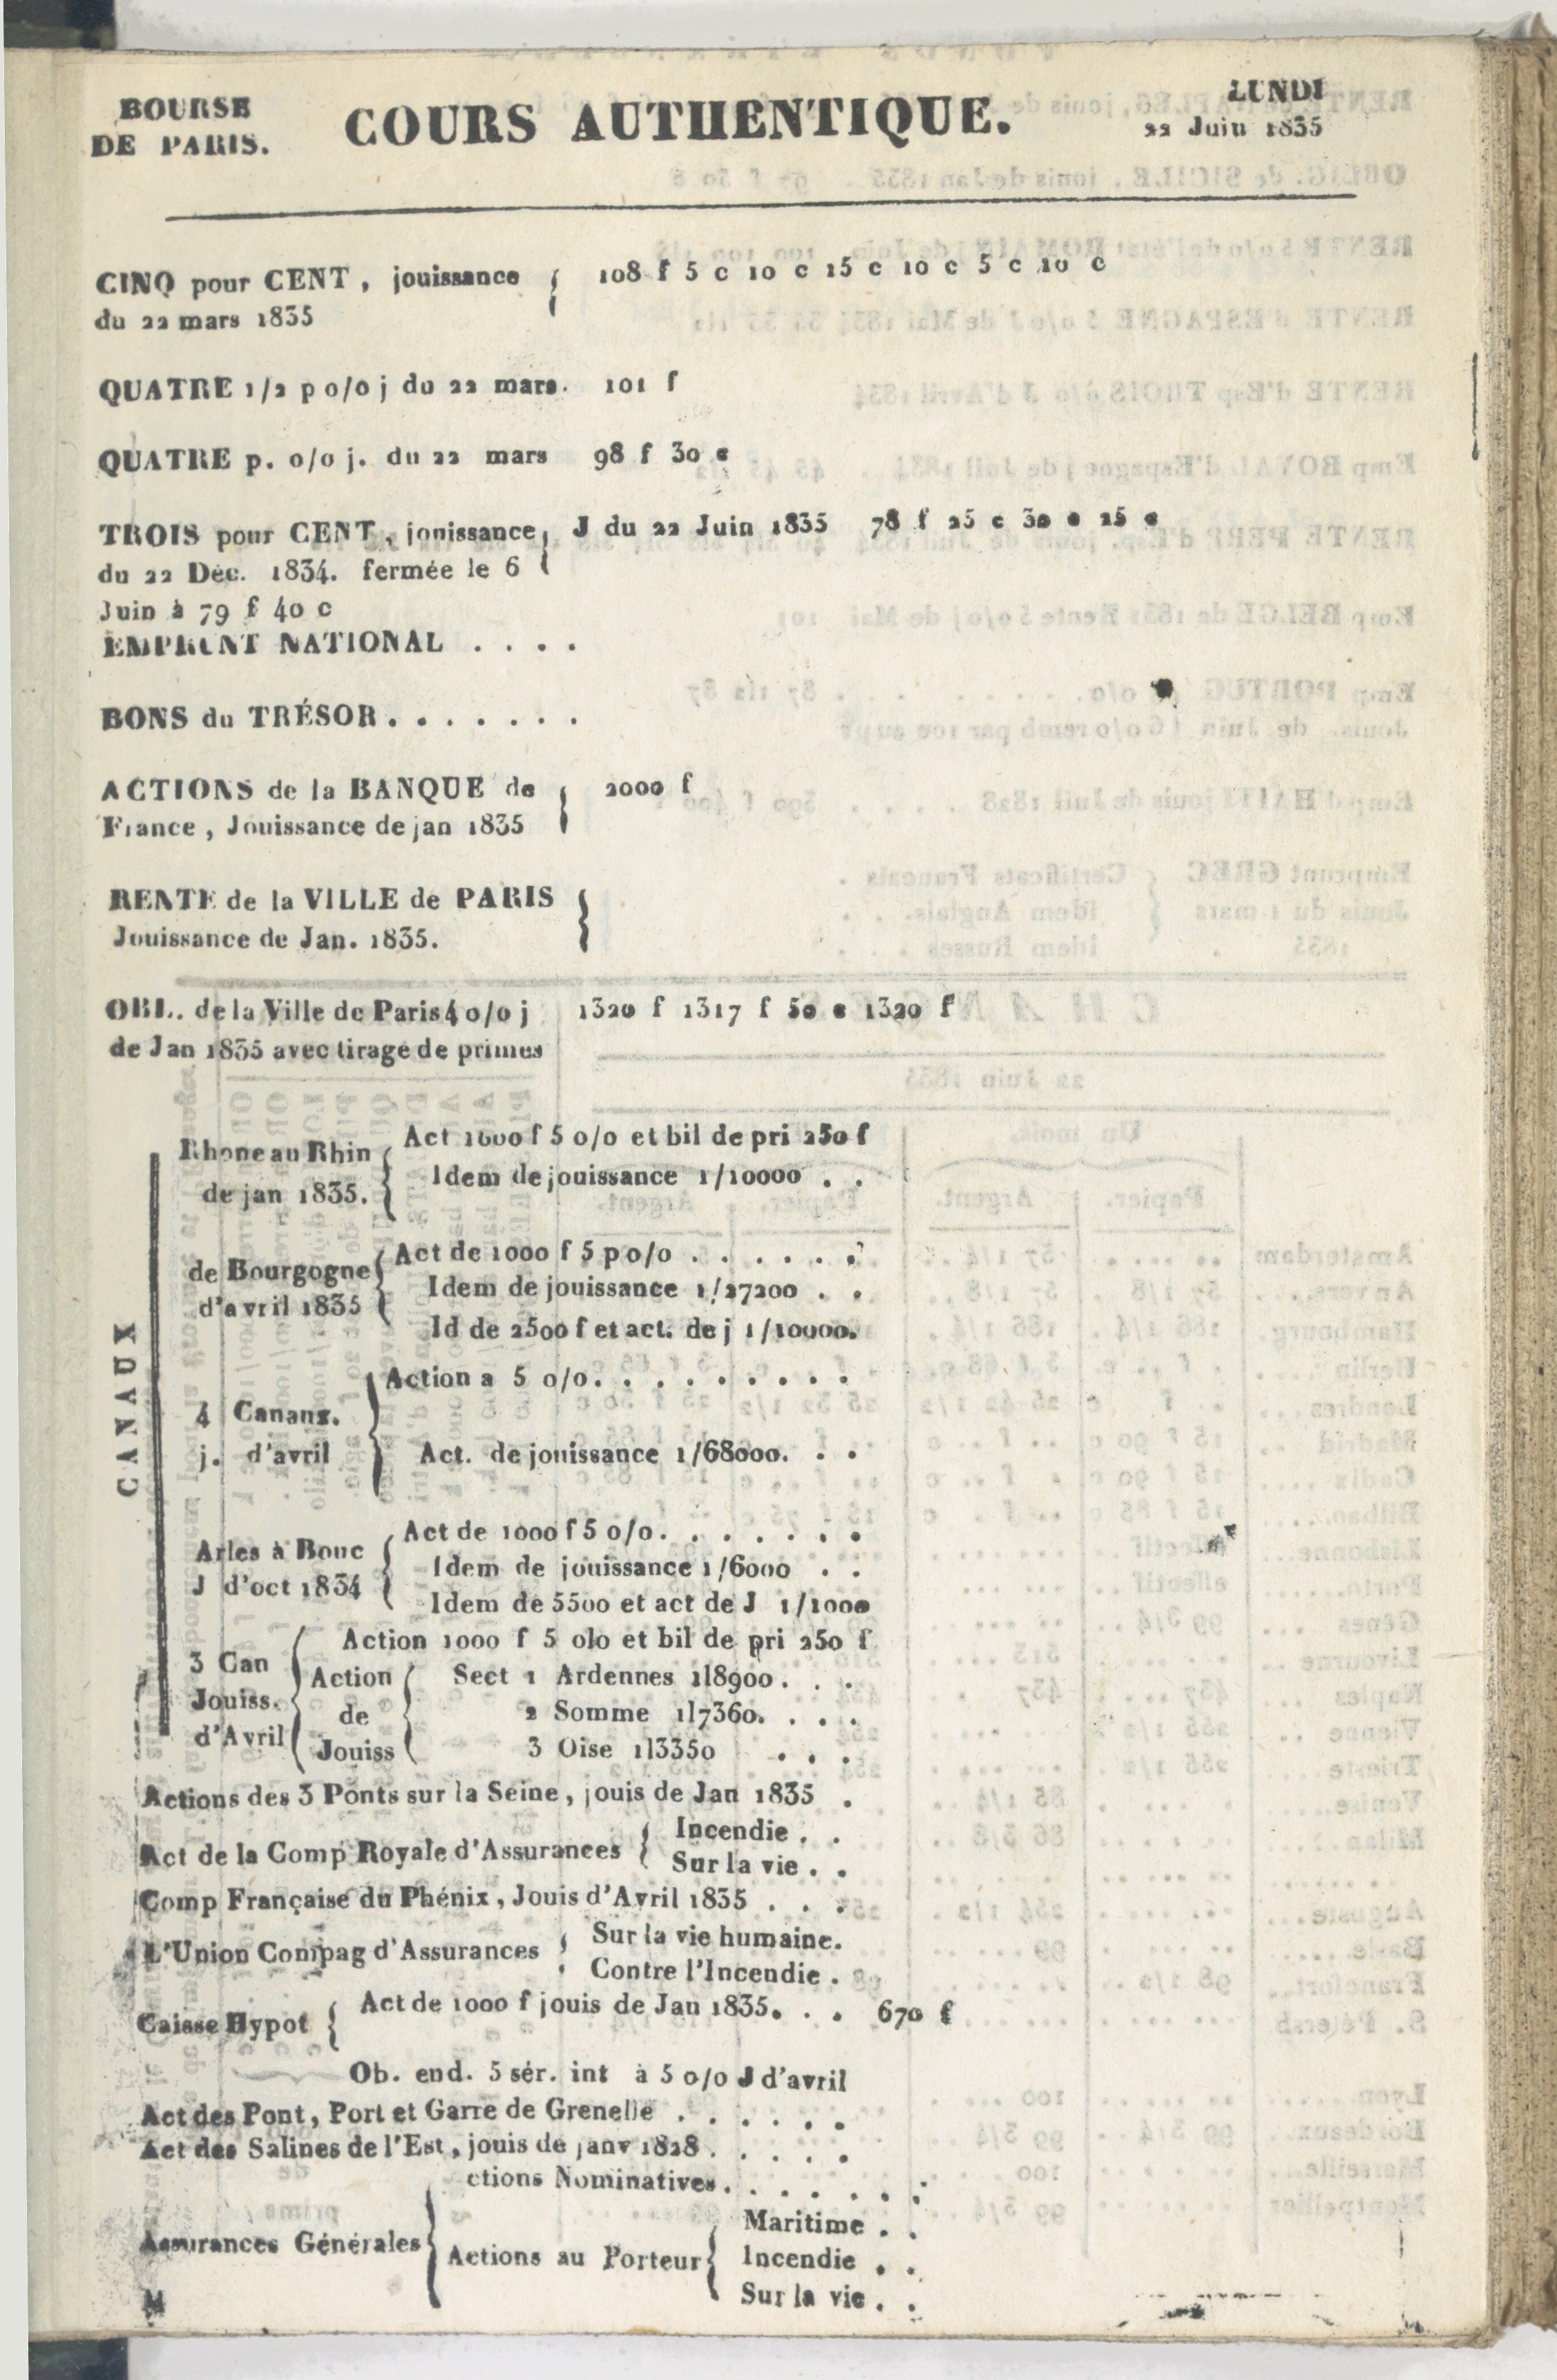 BOURSE
DE PARIS.
COURS AUTHENTIQUE.
LUNDI
22 Juin 1835
CINQ pour CENT, jouissance { 108 f 5 c 10 c 15 c 10 c 5 c 10 c
du 22 mars 1835
QUATRE 1/2 p o/o j du 22 mars. 101 f
QUATRE p. o/o j. du 22 mars 98 f 30 c
TROIS pour CENT, jouissance { J du 22 Juin 1835 78 f 25 c 30 c 25 c
du 22 Déc. 1834. fermée le 6
Juin à 79 f 40 c
EMPRUNT NATIONAL . . . .
BONS du TRÉSOR . . . . . . .
ACTIONS de la BANQUE de { 2000 f
France, Jouissance de jan 1835
RENTE de la VILLE de PARIS {
Jouissance de Jan. 1835.
OBL. de la Ville de Paris 4 o/o j 1320 f 1317 f 50 c 1320 f
de Jan 1835 avec tirage de primes
CANAUX
Rhone au Rhin { Act 1000 f 5 o/o et bil de pri 250 f
de jan 1835. Idem de jouissance 1/10000 . .
de Bourgogne { Act de 1000 f 5 p o/o . . . . . .
d'avril 1835 Idem de jouissance 1/27200 . .
Id de 2500 f et act. de j 1/10000.
4 Canaux. { Action a 5 o/o. . . . . . . . .
j. d'avril Act. de jouissance 1/68000. . .
Arles à Bouc { Act de 1000 f 5 o/o. . . . . . .
J d'oct 1834 Idem de jouissance 1/6000 . .
Idem de 5500 et act de J 1/1000
3 Can Action 1000 f 5 olo et bil de pri 250 f
Jouiss. { Action { Sect 1 Ardennes 1l8900. . .
d'Avril de 2 Somme 1l7360. . . .
Jouiss 3 Oise 1l3350 . . .
Actions des 3 Ponts sur la Seine, jouis de Jan 1835 .
Act de la Comp Royale d'Assurances { Incendie . .
Sur la vie . .
Comp Française du Phénix, Jouis d'Avril 1835 . . .
L'Union Compag d'Assurances { Sur la vie humaine.
Contre l'Incendie .
Caisse Hypot { Act de 1000 f jouis de Jan 1835. . . 670 f
Ob. end. 5 sér. int à 5 o/o J d'avril
Act des Pont, Port et Garre de Grenelle . . . . . .
Act des Salines de l'Est, jouis de janv 1828 . . . . .
ctions Nominatives. . . . . . .
Assurances Générales { Actions au Porteur { Maritime . .
Incendie . .
Sur la vie . .
M